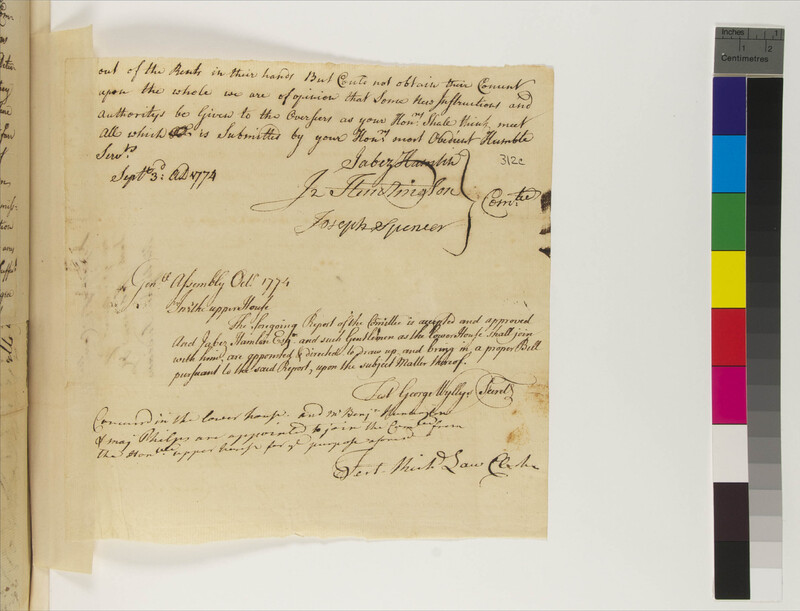 out of the Rents in their hands But Could not obtain their Consent
upon the whole we are of opinion that Some New Instructions and
Authoritys be Given to the Overseers as your Honrs Shall think meet
All which is Submitted by your Honrs most Obedient Humble
Servts
Septr 3d: AD 1774
Jabez Hamlin
312c
Jr Huntington
Comtee
Joseph Spencer
Genll Assembly Octr 1774
In the upper House
The foregoing Report of the Comittee is accepted and approved
And Jabez Hamlin Esqr and such Gentlemen as the Lower House shall join
with him, are appointed & directed to draw up and bring in a proper Bill
pursuant to the said Report, upon the subject Matter thereof.
Test George Wyllys Secret
Concurd in the lower house and Mr Benja Huntington
& maj Phelps are appointed to join the Comtee from
the Honble upper house for ye purpose aforesd
Test. Richd Law Clerk
Inches
1 2
Centimetres